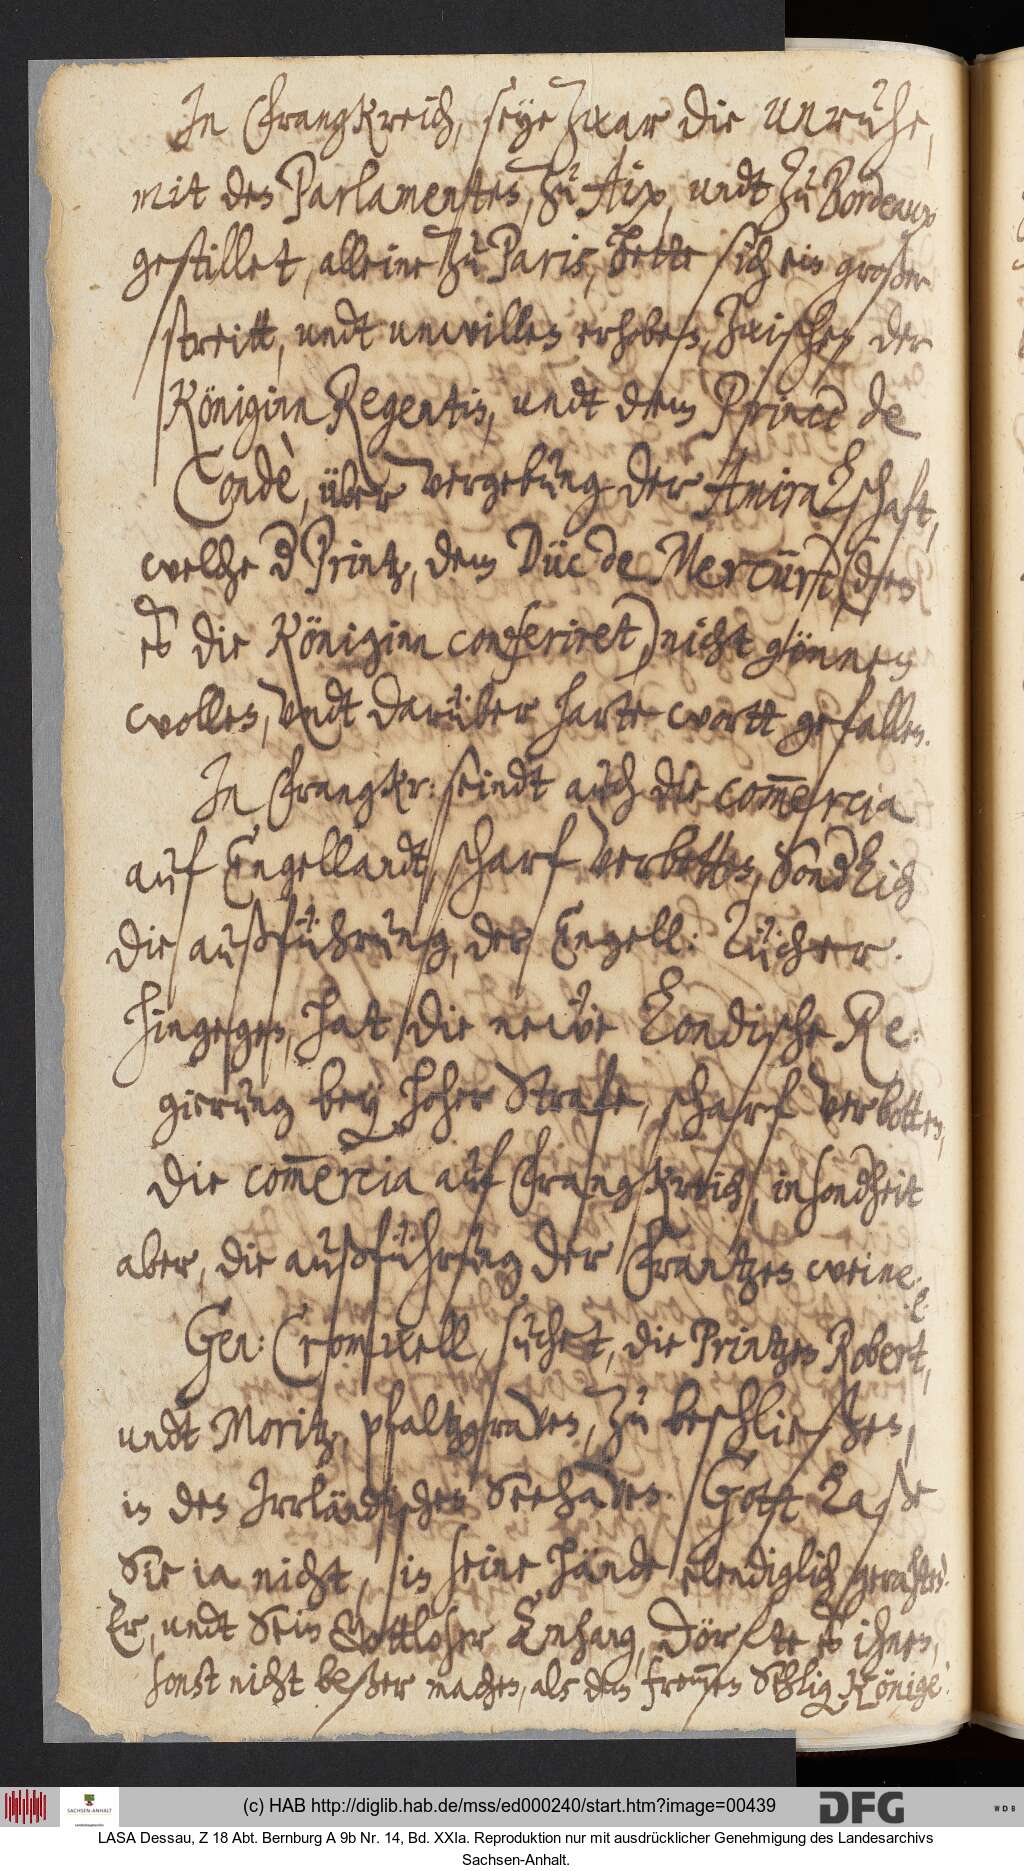 In Frangkreich, seye zwar die unruhe,
mit des Parlamentes, zu Aix, undt zu Bordeaux
gestillet, alleine zu Paris, hette sich ein großer
streitt, undt unwillen erhoben, zwischen der
Königinn Regentin, undt dem Prince de
Condè, über vergebung der Amiralschaft,
welche d Printz, dem Düc de Mercürt, (dem
es die Königinn conferiret) nicht gönnen
wollen, undt darüber harte wortt gefallen.
In Frangkr: seindt auch die com̄ercia
auf Engellandt, scharf verbotten, Sondlich
die außführung, der Engell: Tücher.
Hingegen, hat die neüe Londische Re:
gierung bey hoher Strafe, scharf verbotten,
die com̄ercia auf Frangkreich, insondheit
aber, die außführung der Frantzen weine.
Gen: Cromwell, suchet, die Printzen Robert,
undt Moritz, pfaltzgraven, zu beschließen,
in den Irrländischen Seehaven. Gott Laße
Sie ia nicht, in seine hände elendiglich gerahten.
Er, undt Sein Gottloser Anhang, dörfte es ihnen,
sonst nicht beßer machen, als dem from̄en Sehlig Könige.
(c) HAB http://diglib.hab.de/mss/ed000240/start.htm?image=00439
SACHSEN-ANHALT
DFG
WDB
LASA Dessau, Z 18 Abt. Bernburg A 9b Nr. 14, Bd. XXIa. Reproduktion nur mit ausdrücklicher Genehmigung des Landesarchivs
Sachsen-Anhalt.